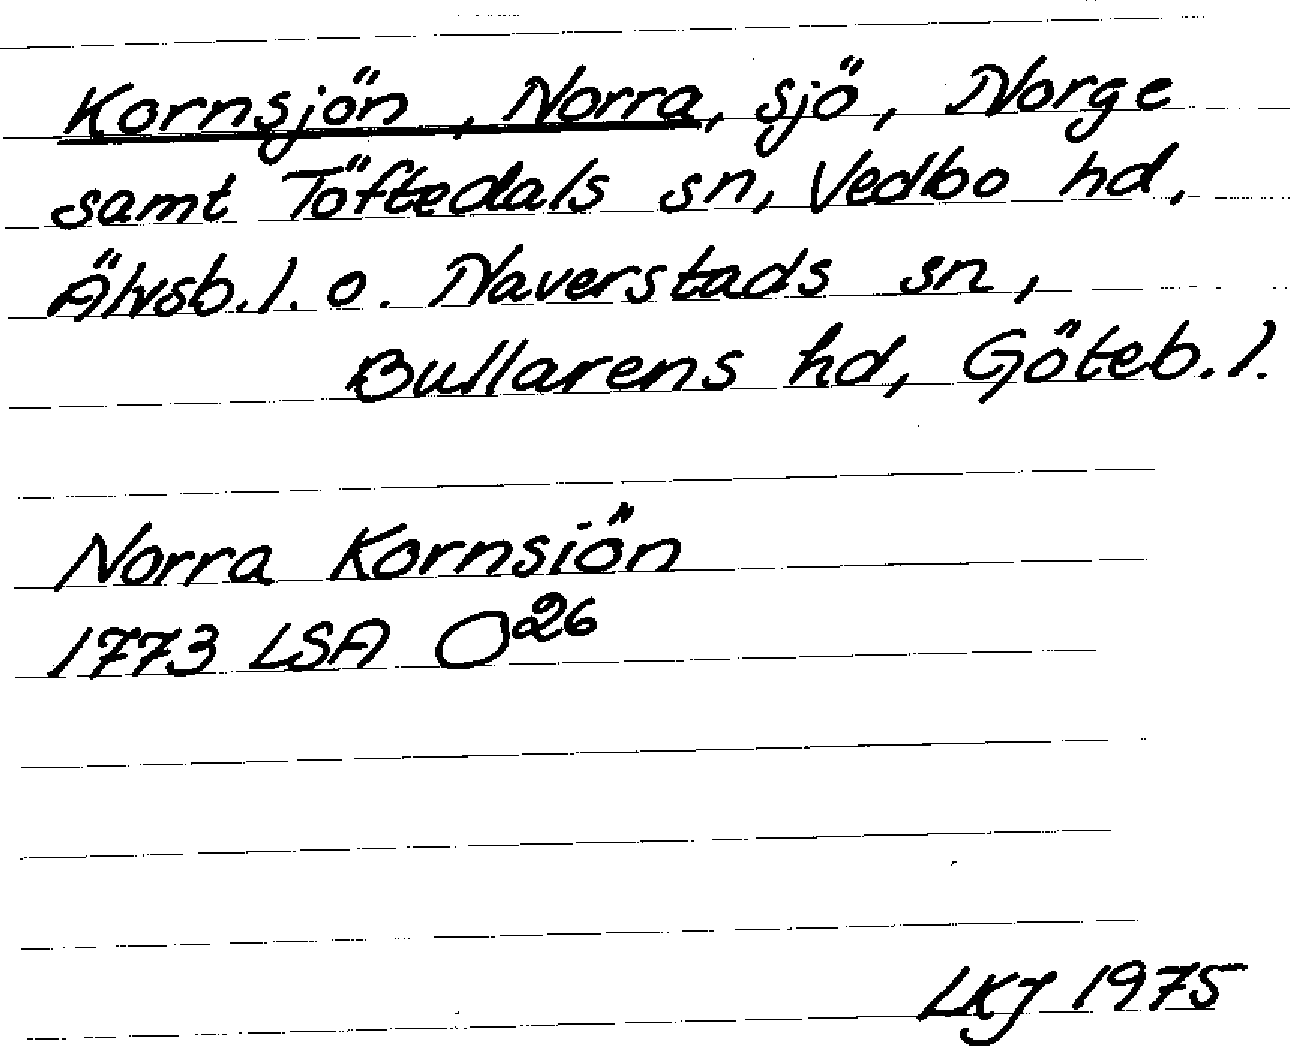 Kornsjön, Norra, sjö, Norge
samt Töftedals sn, Vedbo hd,
Älvsb.l. o. Naverstads sn,
Bullarens hd, Göteb.l.
Norra Kornsiön
1773 LSA O26
LKJ 1975